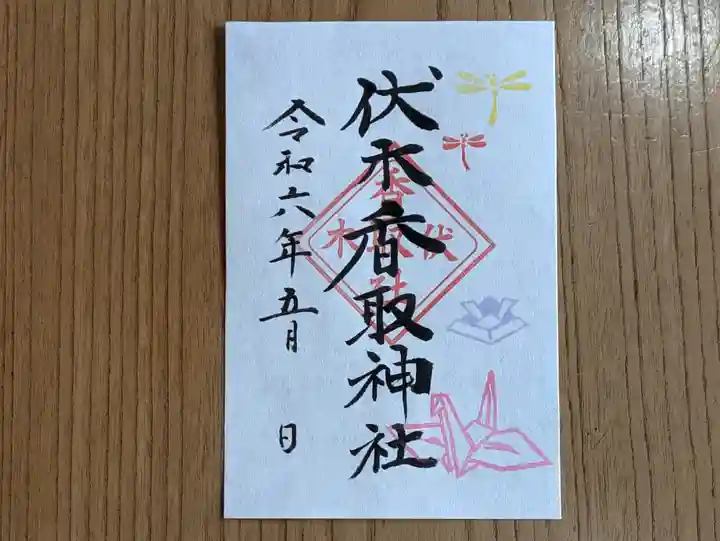 伏木香取神社
令和六年五月 日
香取社
伏 木